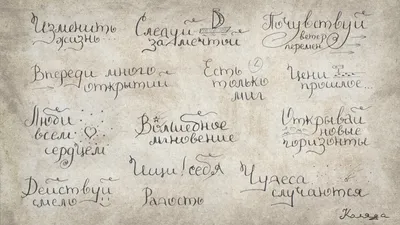 Изменить
жизнь
Следуй
за мечтой
Почувствуй
ветер
перемен
Впереди много
открытий
Есть
только
миг
Цени
прошлое...
Люби
всем
сердцем
Волшебное
мгновение
Открывай
новые
горизонты
Действуй
смело
Ищи! себя
Радость
Чудеса
случаются
Каляда